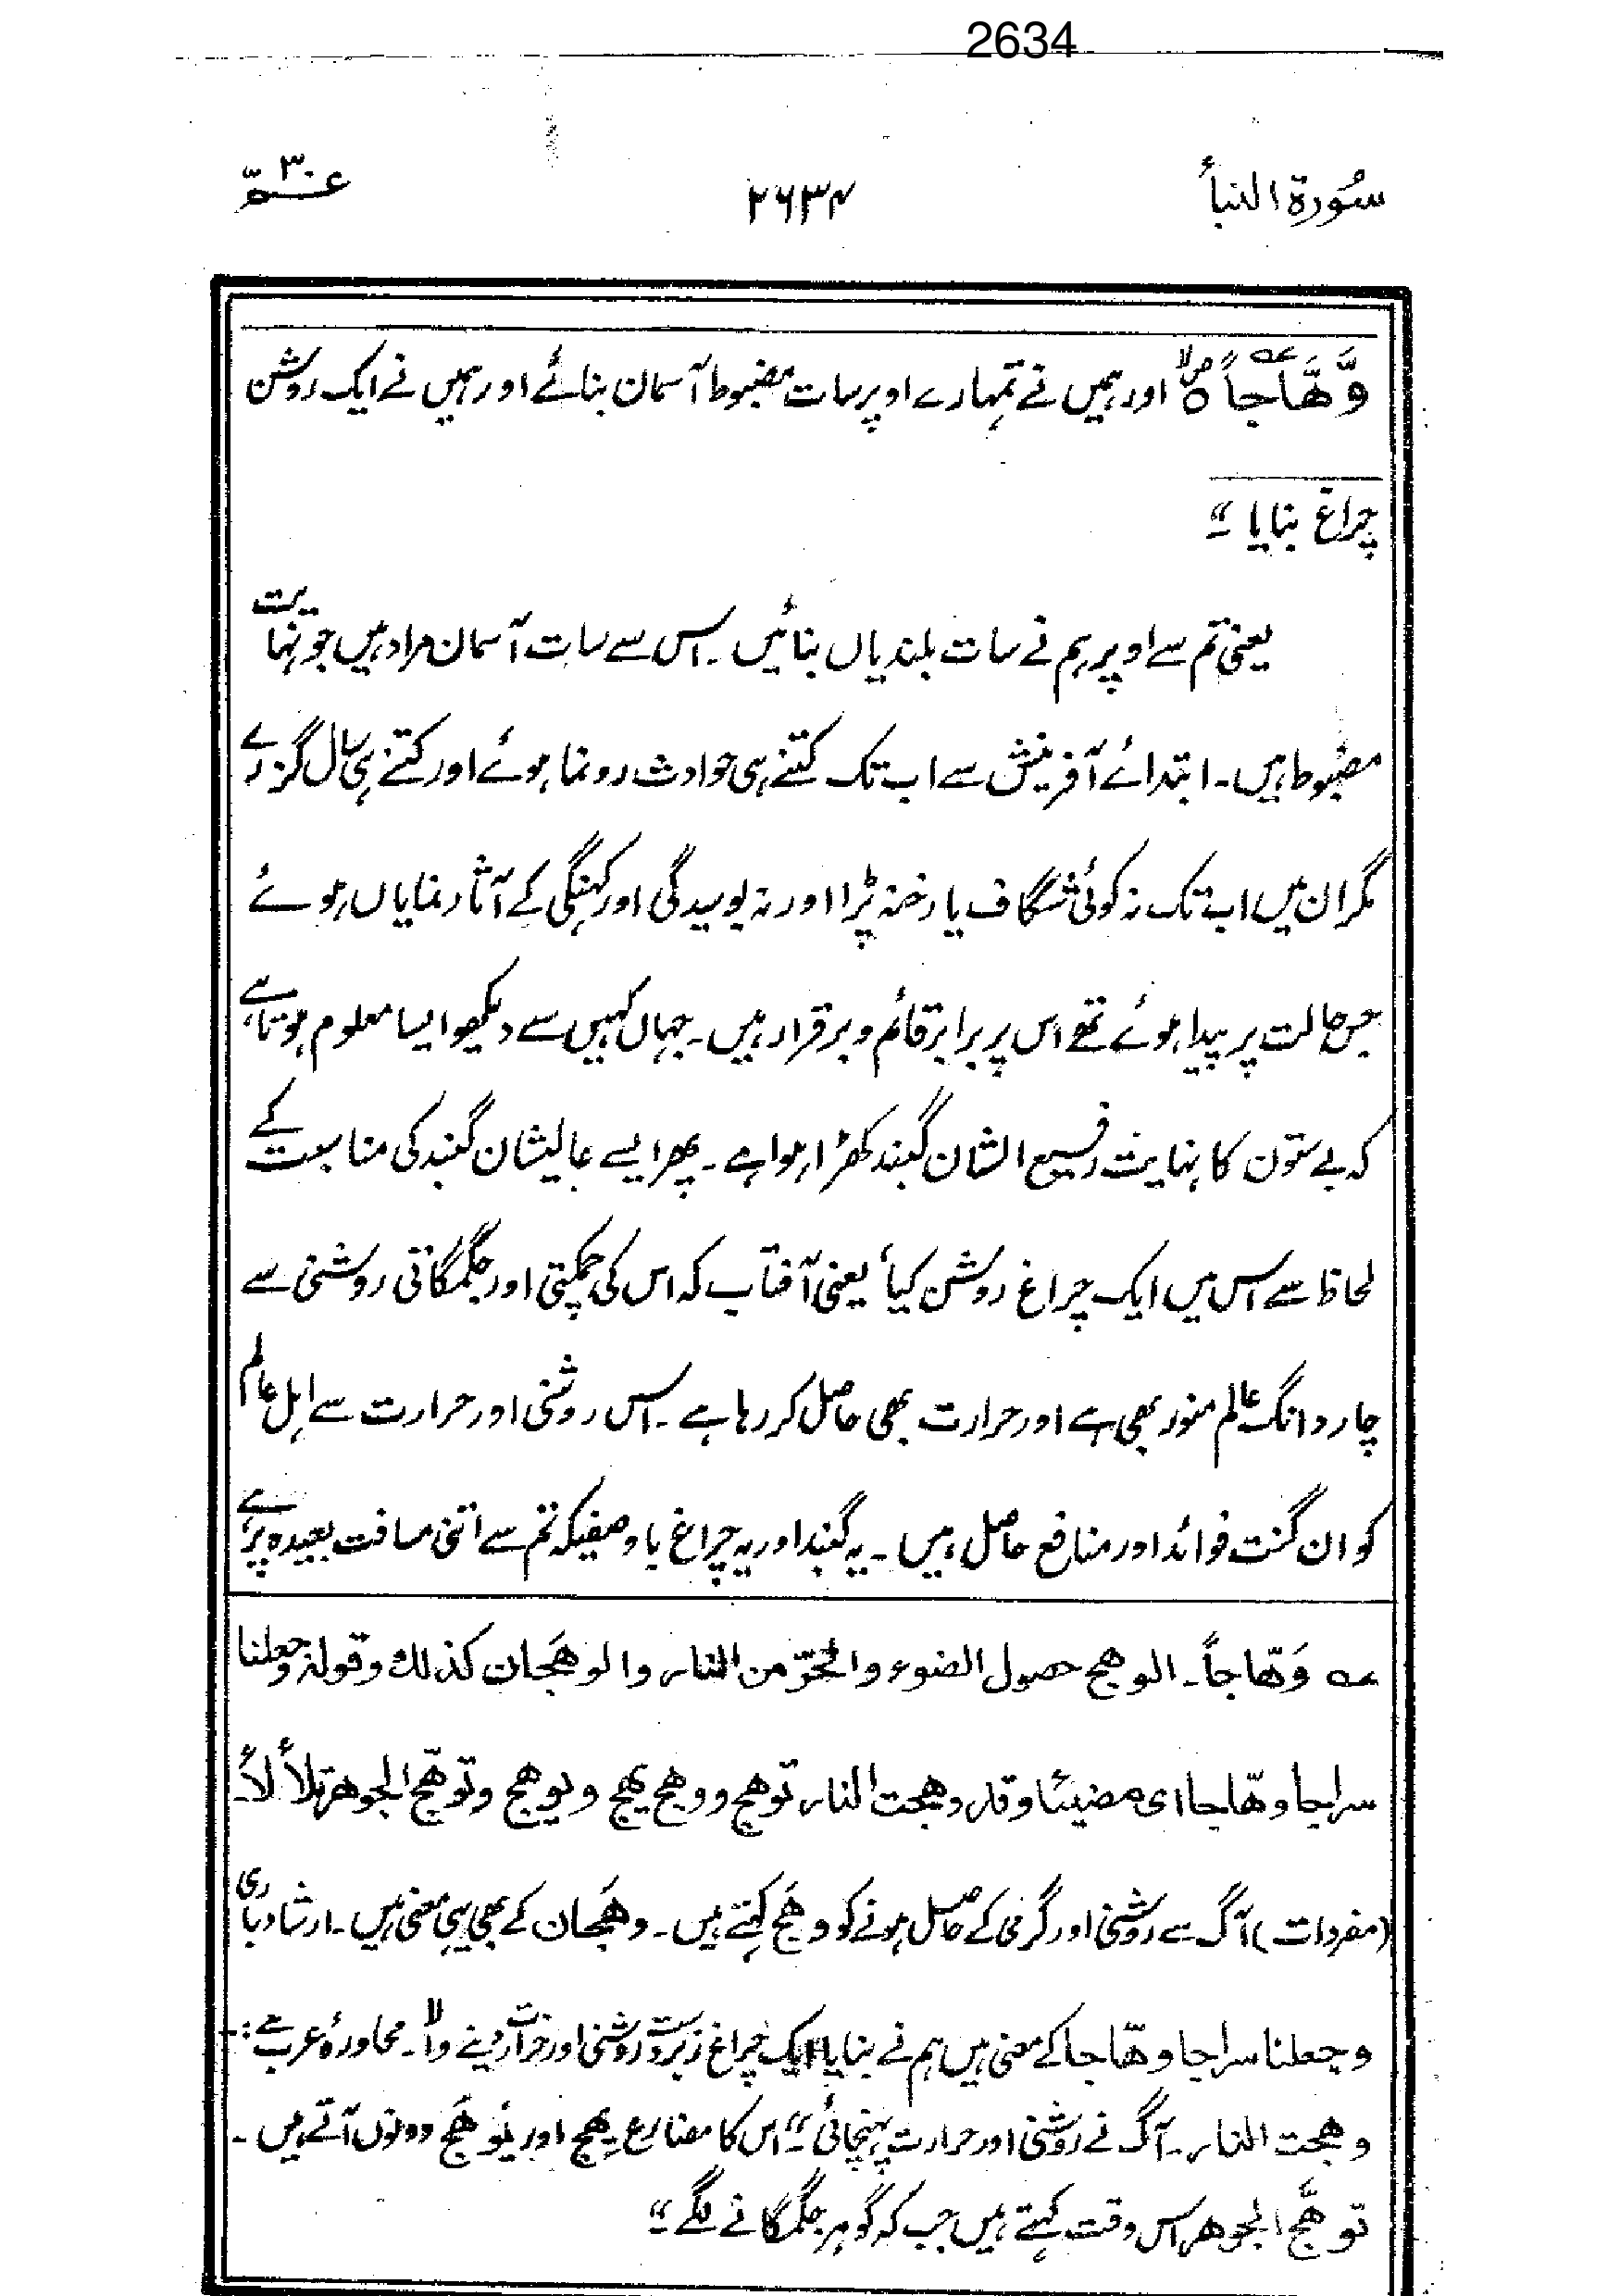 2634
سُورة النبأ
۲۶۳۴
عـمّ ۳۰
وَّهَّاجاً ۝ؕلا اور ہمیں نے تمہارے اوپر سات مضبوط آسمان بنائے اور ہمیں نے ایک روشن
چراغ بنایا ۔“
یعنی تم سے اوپر ہم نے سات بلندیاں بنائیں ۔ اس سے سات آسمان مراد ہیں جو نہایت
مضبوط ہیں ۔ ابتدائے آفرینش سے اب تک کتنے ہی حوادث رونما ہوئے اور کتنے ہی سال گزرے
مگر ان میں اب تک نہ کوئی شگاف یا رخنہ پڑا اور نہ بوسیدگی اور کہنگی کے آثار نمایاں ہوئے
جس حالت پر پیدا ہوئے تھے اس پر برابر قائم و برقرار ہیں ۔ جہاں کہیں سے دیکھو ایسا معلوم ہوتا ہے
کہ بے ستون کا نہایت رفیع الشان گنبد کھڑا ہوا ہے ۔ پھر ایسے عالیشان گنبد کی مناسبت کے
لحاظ سے اس میں ایک چراغ روشن کیا‘ یعنی آفتاب کہ اس کی چمکتی اور جگمگاتی روشنی سے
چار دانگ عالم منور بھی ہے اور حرارت بھی حاصل کر رہا ہے ۔ اس روشنی اور حرارت سے اہل عالم
کو ان گنت فوائد اور منافع حاصل ہیں ۔ یہ گنبد اور یہ چراغ باوصفیکہ تم سے اتنی مسافت بعیدہ پر ہے
عہ وَهّاجاً ۔ الوهج حصول الضوء والحرّ من النار والوهَجان كذلك وقوله وجعلنا
سراجا وهّاجا ای مضیئا وقد وهجت النار توهج ووهج يهج ويوهج وتوهّج الجوهر تلألأ۔
(مفردات) آگ سے روشنی اور گرمی کے حاصل ہونے کو وھَج کہتے ہیں ۔ وھَجان کے بھی یہی معنی ہیں ۔ ارشاد باری
وجعلنا سراجا وھّاجا کے معنی ہیں ہم نے بنایا ایک چراغ زبردست روشنی اور حرارت دینے والا ۔ محاورۂ عرب ہے :-
وھجت النار ۔ آگ نے روشنی اور حرارت پہنچائی ۔“ اس کا مضارع یھج اور یَوھَج دونوں آتے ہیں ۔
توھّج الجوھر اس وقت کہتے ہیں جب کہ گوہر جگمگانے لگے ۔“